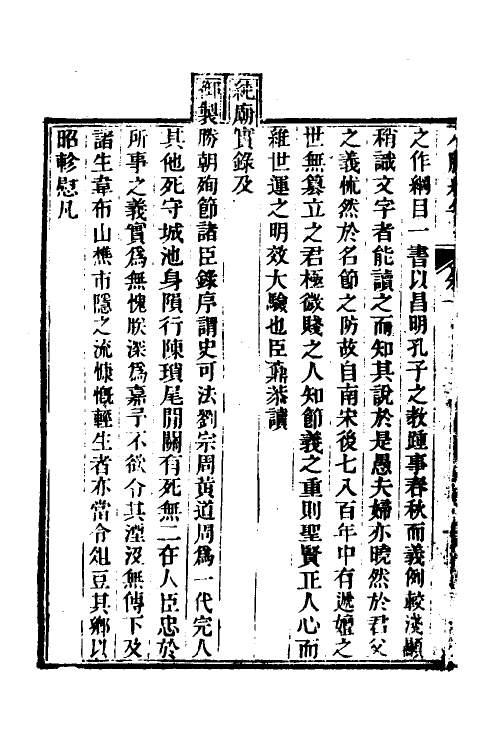 之作綱目一書以昌明孔子之教踵事春秋而義例較淺顯
稍識文字者能讀之而知其說於是愚夫婦亦曉然於君父
之義怵然於名節之防故自南宋後七八百年中有遞嬗之
世無篡立之君極微賤之人知節義之重則聖賢正人心而
維世運之明效大驗也臣鼒恭讀
純廟實錄及
御製勝朝殉節諸臣錄序謂史可法劉宗周黃道周爲一代完人
其他死守城池身隕行陳瑣尾閒關有死無二在人臣忠於
所事之義實爲無愧朕深爲嘉予不欲令其湮沒無傳下及
諸生韋布山樵市隱之流慷慨輕生者亦當令俎豆其鄉以
昭軫慰凡